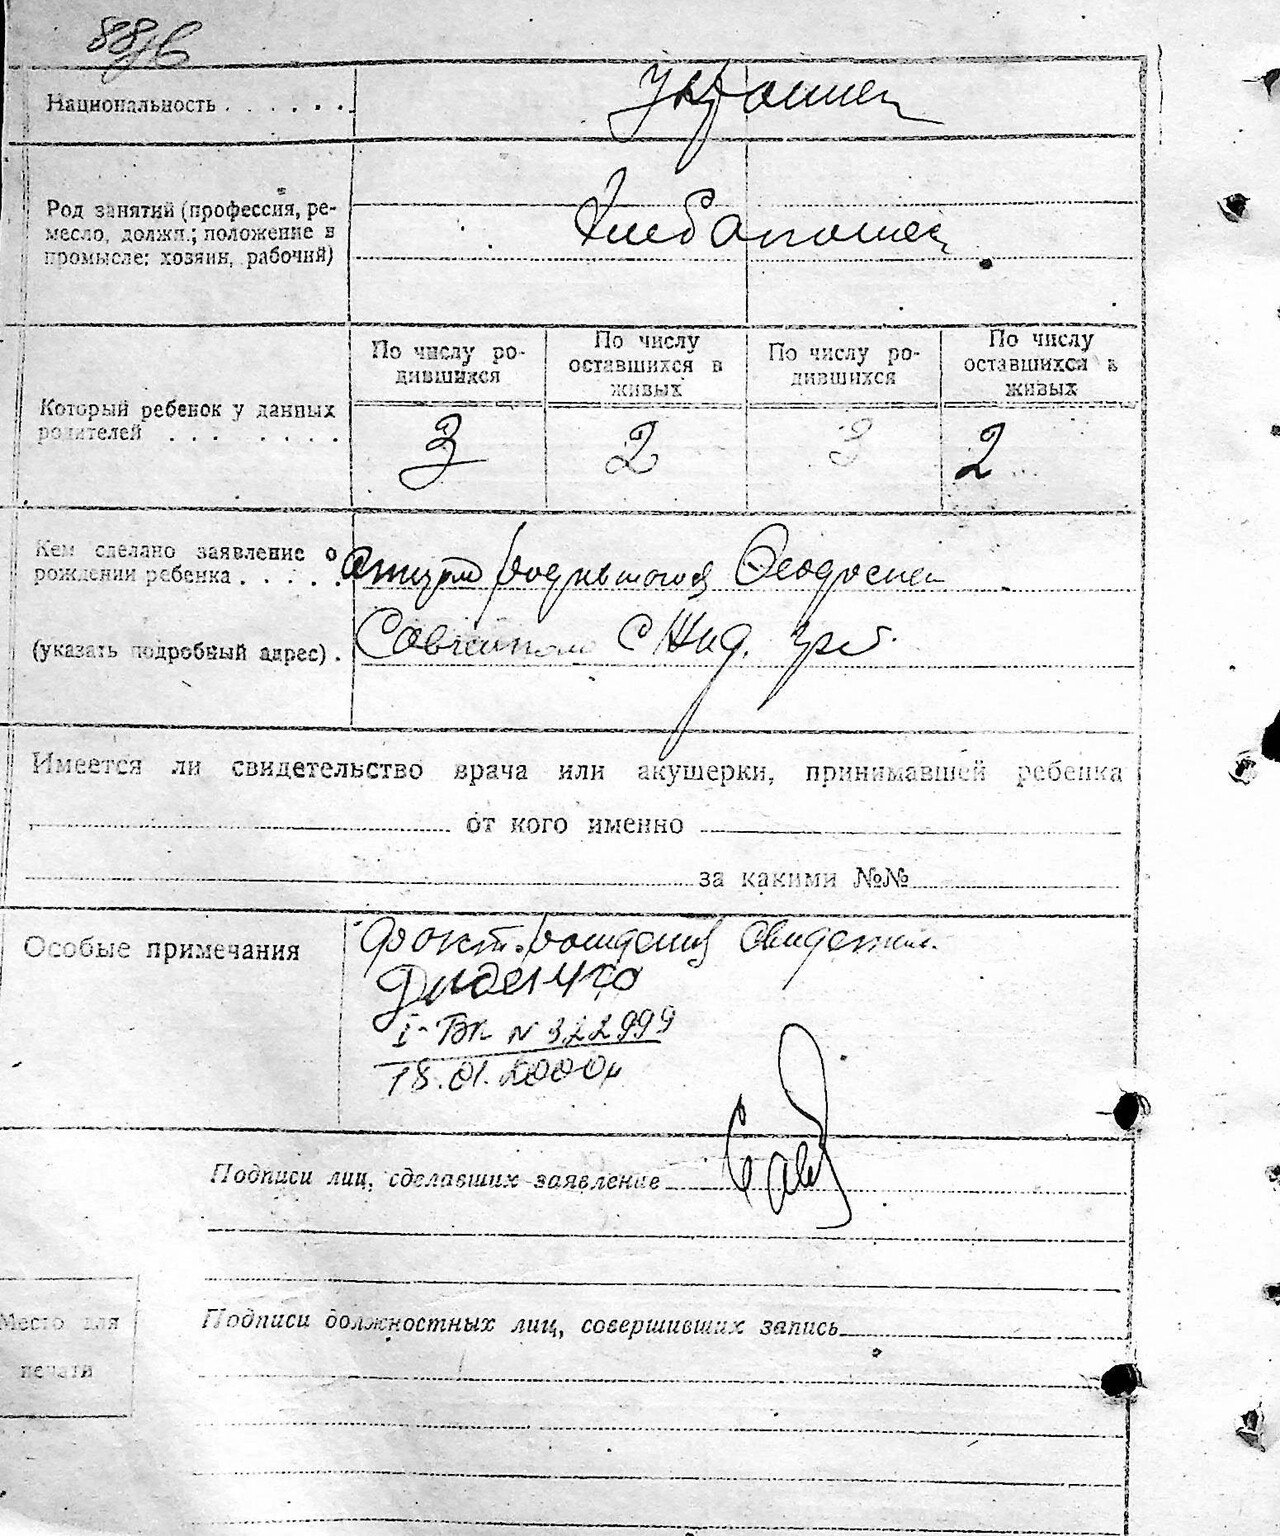 Национальность . . . . . . .
Украинец
Род занятий (профессия, ре-
месло, должн.; положение в
промысле: хозяин, рабочий)
Хлебопашец
Который ребенок у данных
родителей . . . . . . .
По числу ро-
дившихся
По числу
оставшихся в
живых
По числу ро-
дившихся
По числу
оставшихся в
живых
3 2 3 2
Кем сделано заявление о
рождении ребенка . . . . .
Отцом родившагося Феодосием
(указать подробный адрес) .
С
Имеется ли свидетельство врача или акушерки, принимавшей ребенка
от кого именно
за какими №№
Особые примечания
Факт. рождения свидетел.
Диденко
I-БК N 322999
18.01.2000р
Подписи лиц, сделавших заявление
Сав
Подписи должностных лиц, совершивших запись
Место для
печати